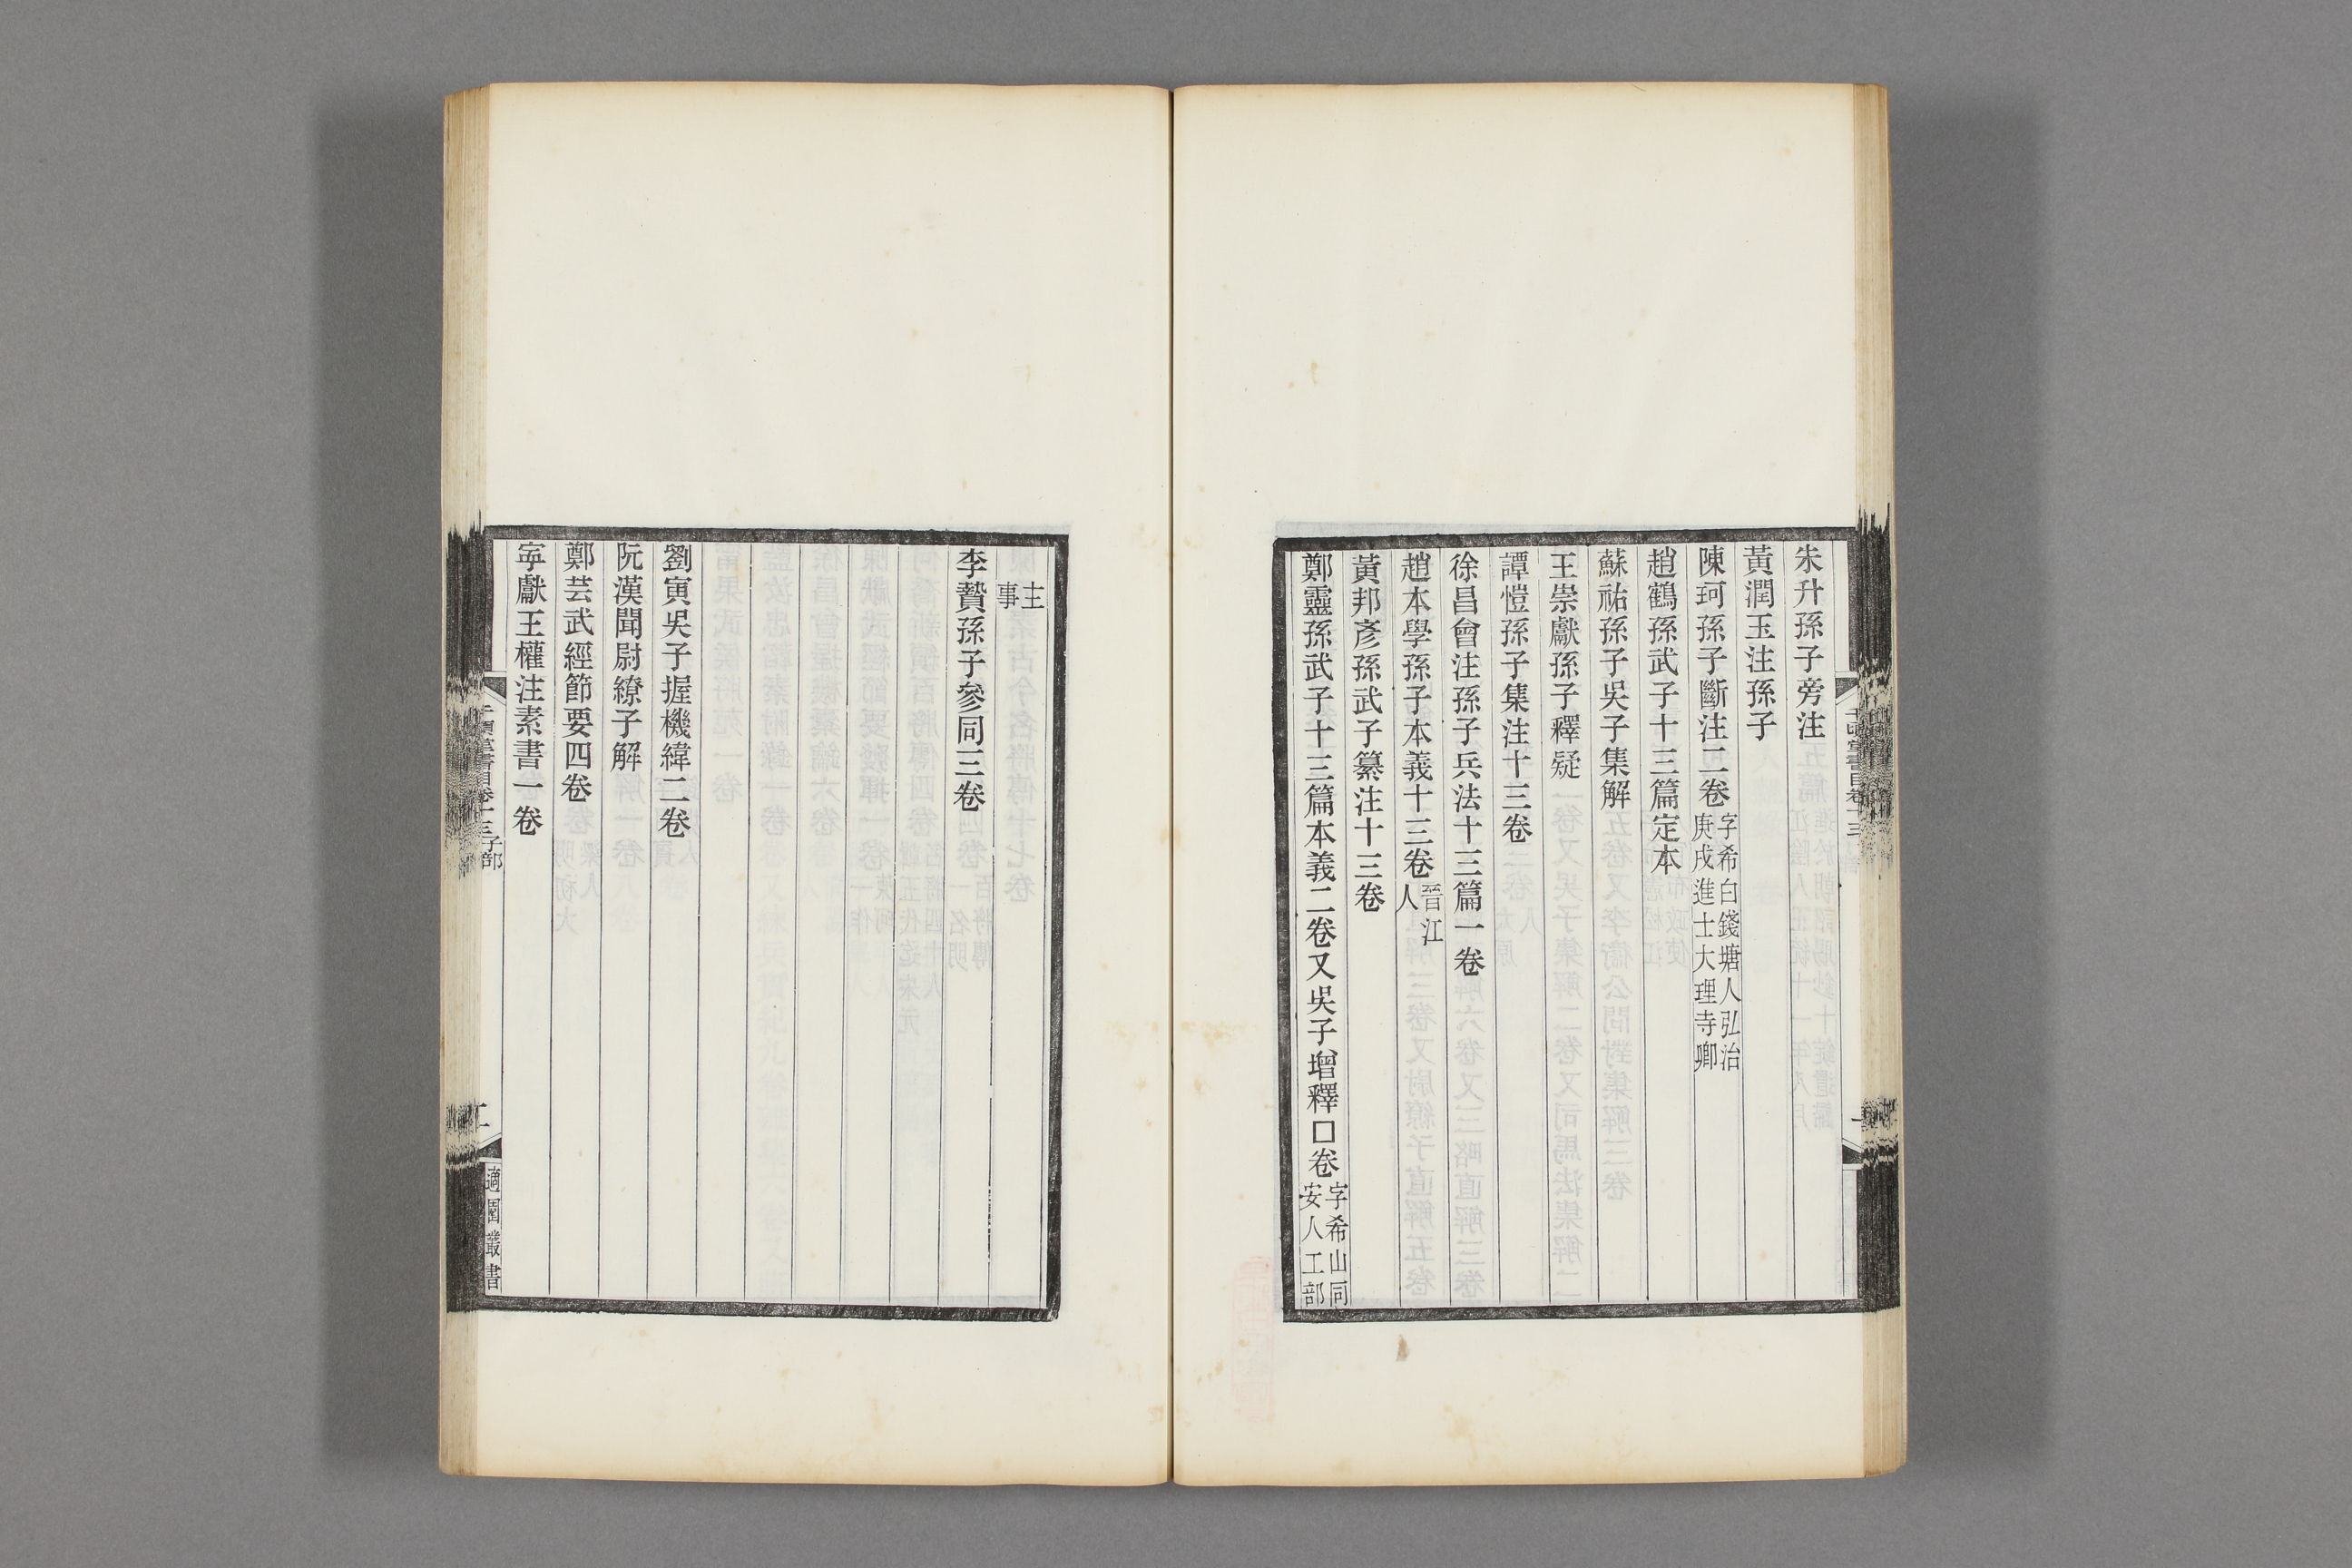 朱升孫子旁注
黃潤玉注孫子
陳珂孫子斷注二卷字希白錢塘人弘治庚戌進士大理寺卿
趙鶴孫武子十三篇定本
蘇祐孫子吳子集解
王崇獻孫子釋疑
譚愷孫子集注十三卷
徐昌會注孫子兵法十三篇一卷
趙本學孫子本義十三卷晉江人
黃邦彥孫武子纂注十三卷
鄭靈孫武子十三篇本義二卷又吳子增釋□卷字希山同安人工部
主事
李贄孫子參同三卷
劉寅吳子握機緯二卷
阮漢聞尉繚子解
鄭芸武經節要四卷
寕獻王權注素書一卷
千頃堂書目卷十三子部
二
適園叢書